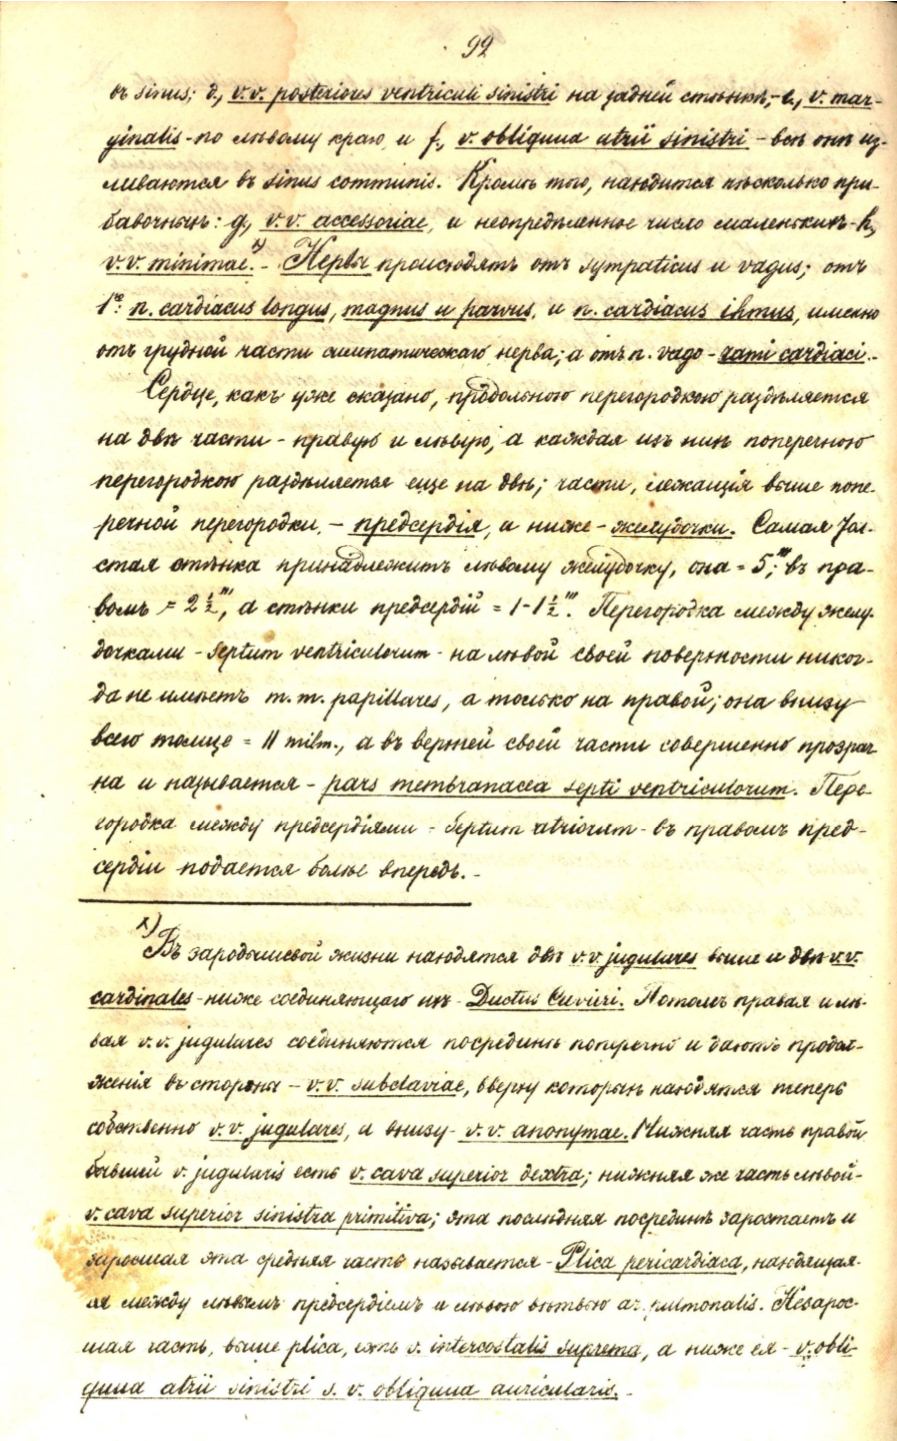 99
въ sinus; d., v.v. posteriores ventriculi sinistri на задней стѣнкѣ; - e., v. mar-
ginalis - по лѣвому краю, и f., v. obliqua atrii sinistri - всѣ онѣ из-
ливаются въ sinus communis. Кромѣ того, находится нѣсколько при-
бавочныхъ: g., v.v. accessoriae, и неопредѣленное число маленькихъ - h.,
v.v. minimae. 1) - Нервы происходятъ отъ sympaticus и vagus; отъ
1го: n. cardiacus longus, magnus и parvus, и n. cardiacus ihmus, именно
отъ грудной части симпатическаго нерва; а отъ n. vago - rami cardiaci. -
Сердце, какъ уже сказано, продольною перегородкою раздѣляется
на двѣ части - правую и лѣвую, а каждая изъ нихъ поперечною
перегородкою раздѣляется еще на двѣ; части, лежащія выше попе-
речной перегородки, - предсердія, и ниже - желудочки. Самая тол-
стая стѣнка принадлежитъ лѣвому желудочку, она = 5'''; въ пра-
вомъ = 2 1/2''', а стѣнки предсердій = 1-1 1/2'''. Перегородка между желу-
дочками - septum ventriculorum - на лѣвой своей поверхности никог-
да не имѣетъ m.m. papillares, а только на правой; она внизу
всего толще = 11 milm., а въ верхней своей части совершенно прозрач-
на и называется - pars membranacea septi ventriculorum. Пере-
городка между предсердіями - septum atriorum - въ правомъ пред-
сердіи подается болѣе впередъ. -
1) Въ зародышевой жизни находятся двѣ v.v. jugulares выше и двѣ v.v.
cardinales - ниже соединяющаго ихъ - Ductus Cuvieri. Потомъ правая и лѣ-
вая v.v. jugulares соединяются посрединѣ поперечно и даютъ продол-
женія въ стороны - v.v. subclaviae, вверху которыхъ находятся теперь
собственно v.v. jugulares, и внизу - v.v. anonymae. Нижняя часть правой
бывшей v. jugularis есть v. cava superior dextra; нижняя же часть лѣвой -
v. cava superior sinistra primitiva; эта послѣдняя посрединѣ заростаетъ и
заросшая эта средняя часть называется - Plica pericardiaca, находящая-
ся между лѣвымъ предсердіемъ и лѣвою вѣтвью ar. pulmonalis. Незарос-
шая часть, выше plica, есть v. intercostalis suprema, а ниже ея - v. obli-
qua atrii sinistri s. v. obliqua auricularis. -